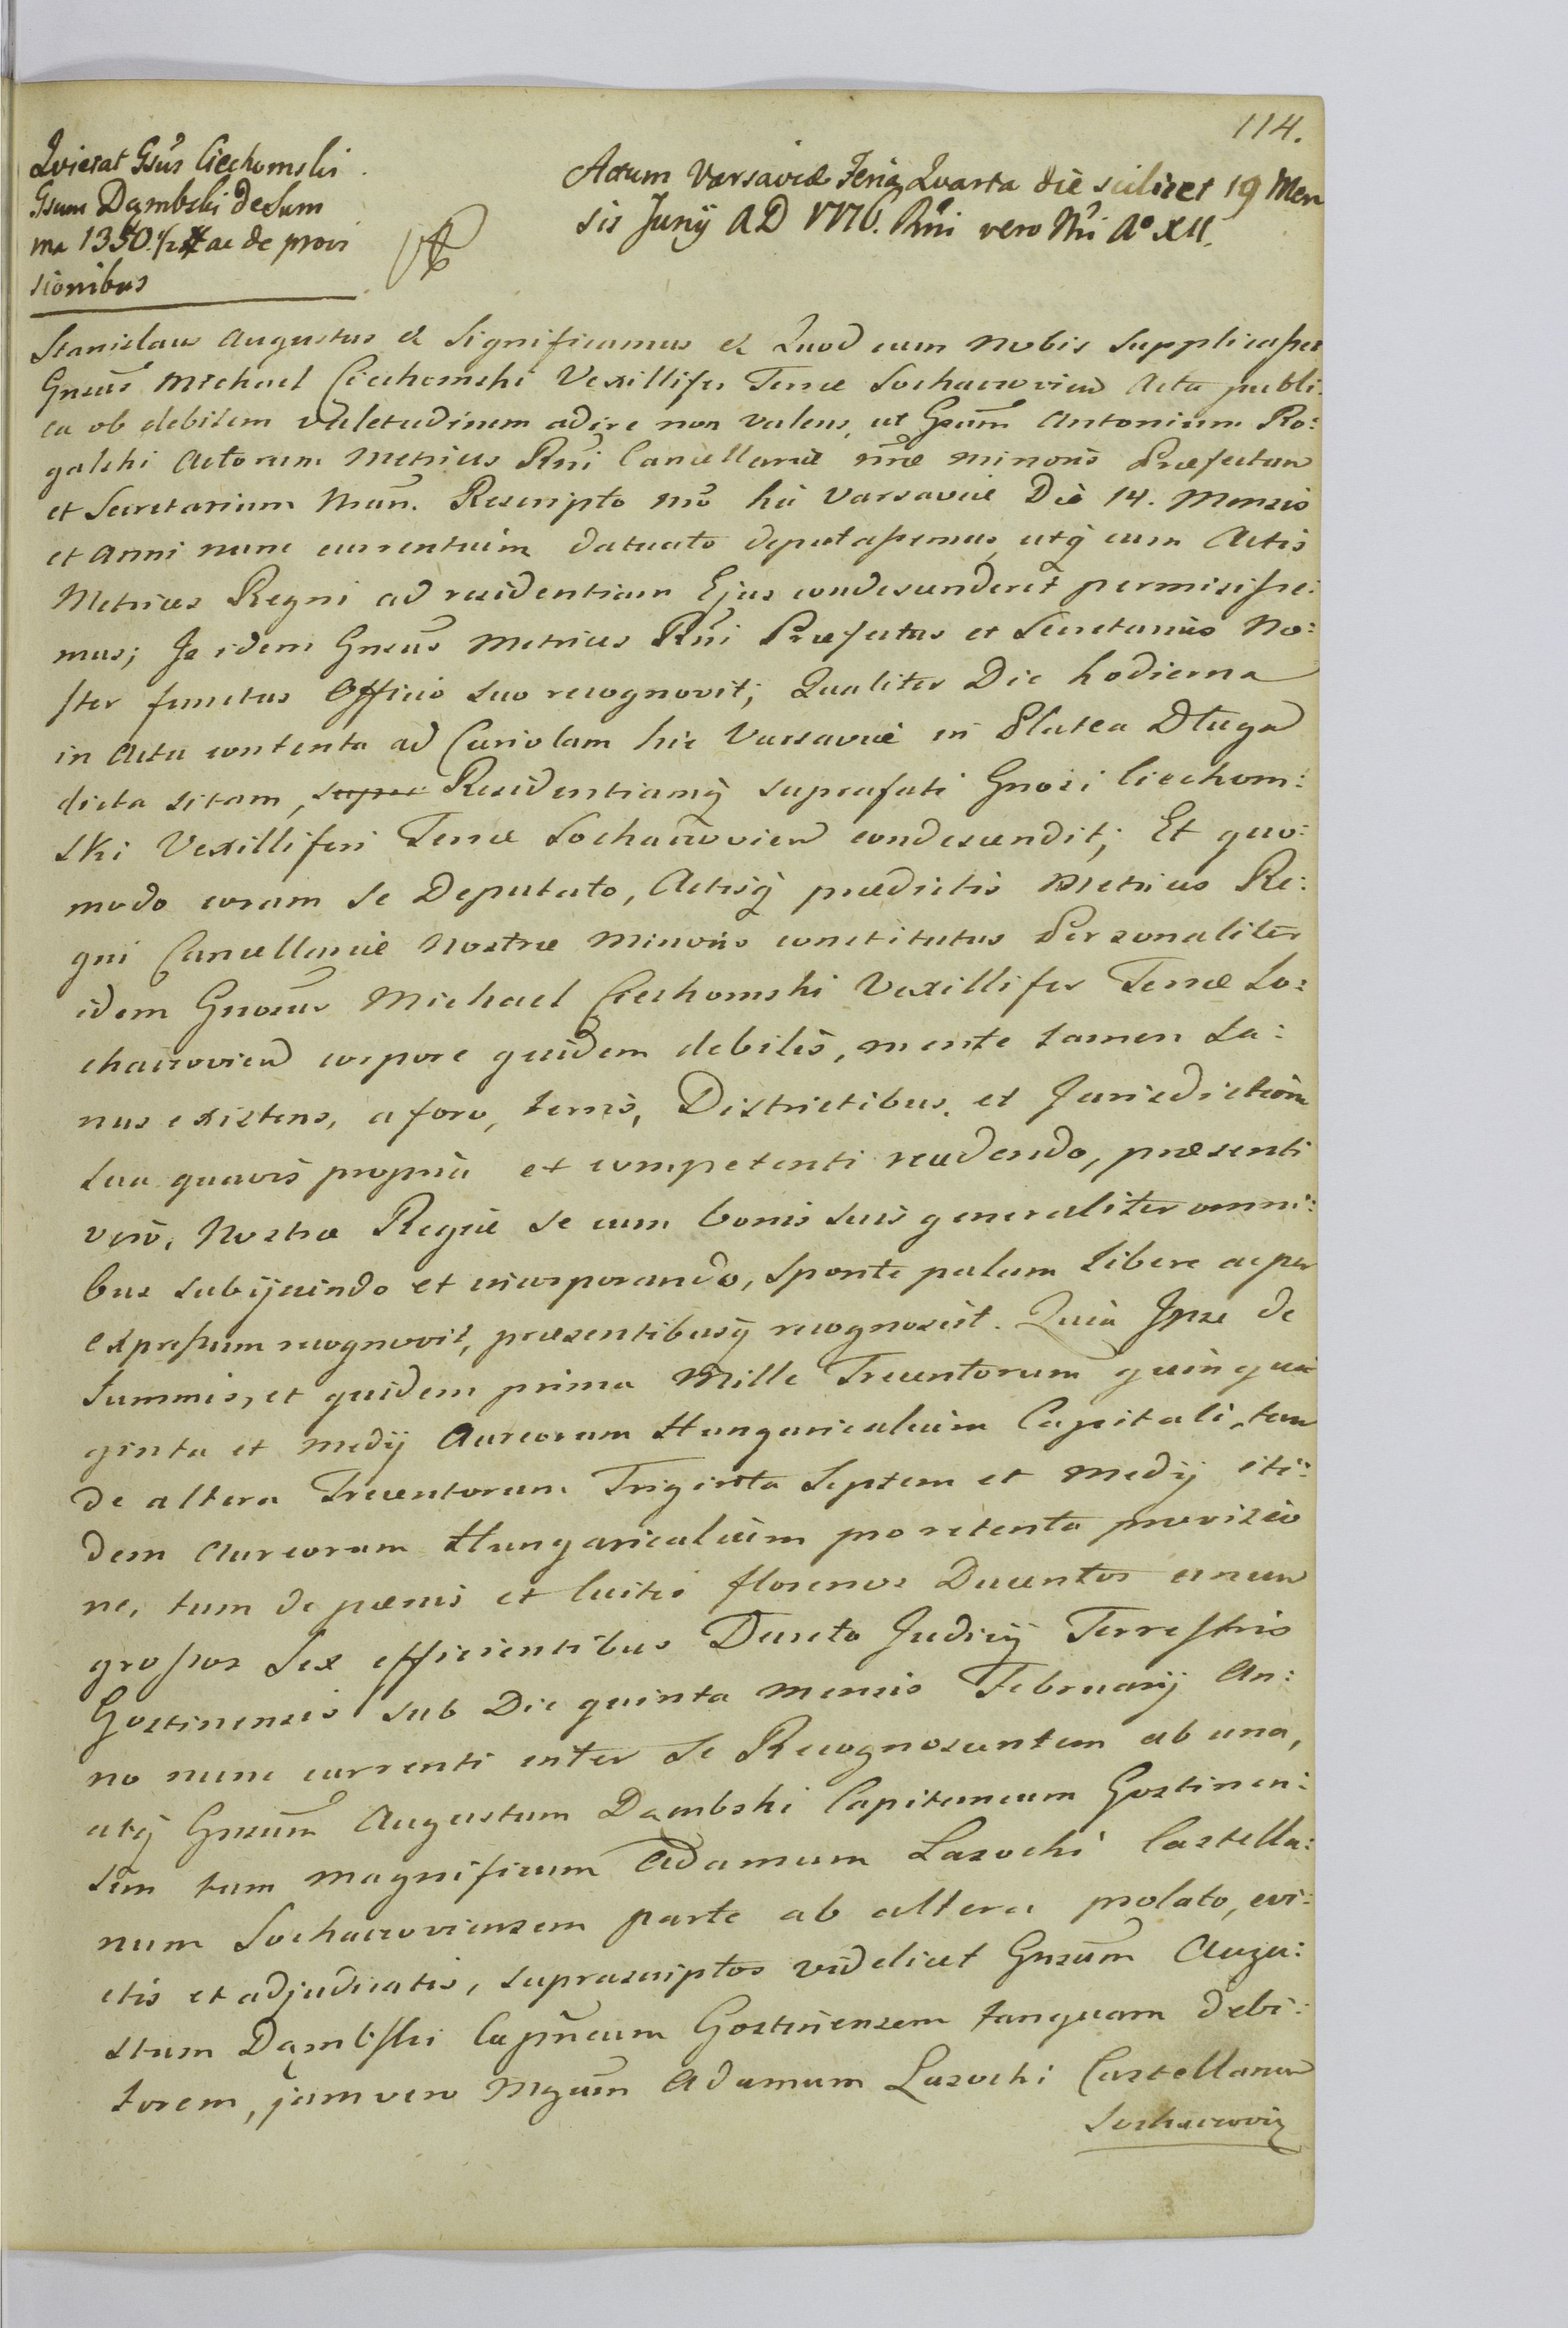 114.
Qvietat Gsus Ciechomski
Gsum Dąmbski de Sum
ma 1350. 1/2 # ac de provi
sionibus
Actum Varsaviæ Feria Quarta die scilicet 19 Men
sis Junij A D 1776. Rñi vero Nri A° XII.
Stanislaus Augustus & Significamus & Quod cum Nobis supplicasset
Gnsus Michael Ciechomski Vexillifer Terræ Sochaczovien Acta publi:
ca ob debilem valetudinem adire non valens, ut Gsum Antonium Ro:
galski Actorum Metrices Rñi Cancellariæ nræ minoris Præfectum
et Secretarium Nrum. Rescripto nro hic Varsaviæ Die 14. Mensis
et Anni nunc currentium datato deputassemus, utq cum Actis
Metrices Regni ad residentiam Ejus condescenderet permisisse:
mus; Is idem Gnsus Metrices Rñi Præfectus et Secretarius No:
ster functus Officio suo recognovit; Qualiter Die hodierna
in Actu contenta ad Curiolam hic Varsaviæ in Platea Długa
dicta sitam, Residentiamq suprafati Gnosi Ciechom:
ski Vexilliferi Terræ Sochaczovien condescendit; Et quo:
modo coram se Deputato, Actisq prædictis Metrices Re:
gni Cancellariæ Nostræ Minoris constitutus Personaliter
idem Gnosus Michael Ciechomski Vexillifer Terræ So:
chaczovien corpore quidem debilis, mente tamen Sa:
nus existens, a foro, terris, Districtibus, et Jurisdictione
sua quavis propria et competenti recedendo, præsenti
vero, Nostræ Regiæ se cum bonis suis generaliter omni:
bus subijciendo et incorporando, sponte palam libere ac per
expressum recognovit, præsentibusq recognoscit. Quia Ipse de
Summis, et quidem prima Mille Trecentorum quinqua
ginta et medij Aureorum Hungaricalium Capitali, tum
de altera Trecentorum Triginta Septem et medij iti:
dem Aureorum Hungaricalium pro retenta provisio
ne, tum de pænis et luitis florenos Ducentos
grossos Sex efficientibus Decreto Judicij Terrestris
Gostinensis sub Die quinta mensis Februarij An:
no nunc currenti inter Se Recognoscentem ab una,
atq Gnsum Augustum Dąmbski Capitaneum Gostinen:
sem tum Magnificum Adamum Lasocki Castella:
num Sochaczoviensem parte ab altera prolato, evi:
ctis et adjudicatis, suprascriptos videlicet Gnsum Augu:
stum Dąmbski Capneum Gostinensem tanquam debi:
torem, jam vero Mgcum Adamum Lasocki Castellanum
Sochaczovien